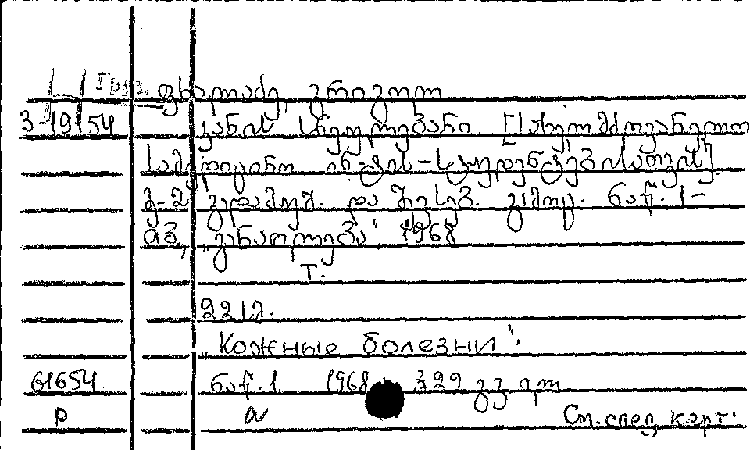 ფხალაძე, გრიგოლ
3-19154 კანის სნეულებანი [სახელმძღვანელო
სამედიცინო ინ-ტის-სტუდენტებისათვის].
მე-2 გადამუშ. და შევსებ. გამოც. ნაწ. 1-
თბ., „განათლება", 1968
Т.
221 2.
„Кожные болезни".
61654 ნაწ. 1 1968 329 გვ.
См. след. карт.